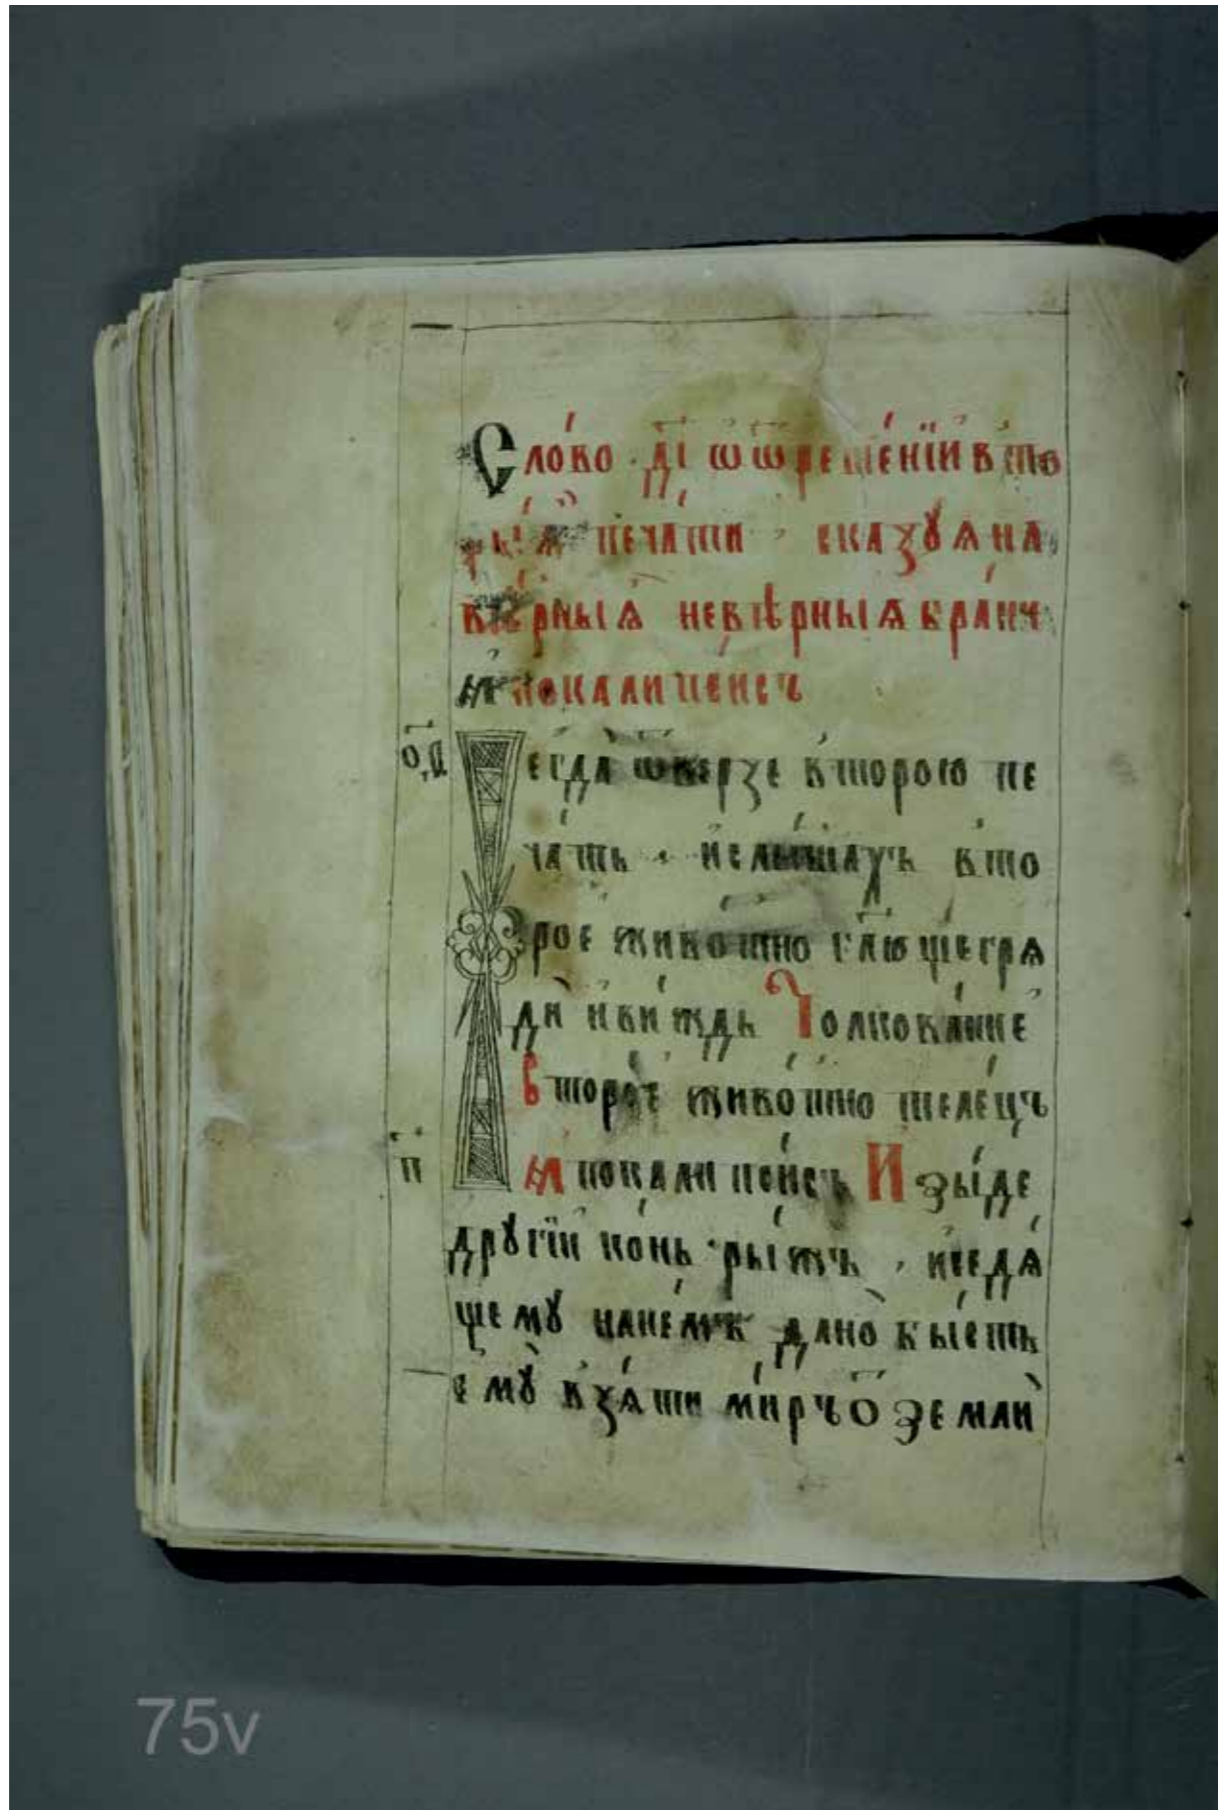 Сло́во д҃і ѡ ѿрешє́нїи вто
ры́ѧ печа́ти , сказꙋѧ на
вѣ́рныѧ невѣрныѧ бра́нь
а҆покали́пѱисъ
о҃д
И егда̀ ѿверзе вторѹю пе
ча́ть , и҆слы́шахъ вто
рое живо́тно гл҃юще грѧ
дѝ и҆ви́ждь Толкова́нїе
второ́е живо́тно теле́цъ
п҃
А҆покали по́исъ Изы́де
дрꙋгі́й ко́нь ры́жъ , и҆седѧ́
щемꙋ̀ нане́мъ дано̀ бы́сть
є҆мꙋ̀ взѧ́ти ми́ръ ѿ землѝ
75v